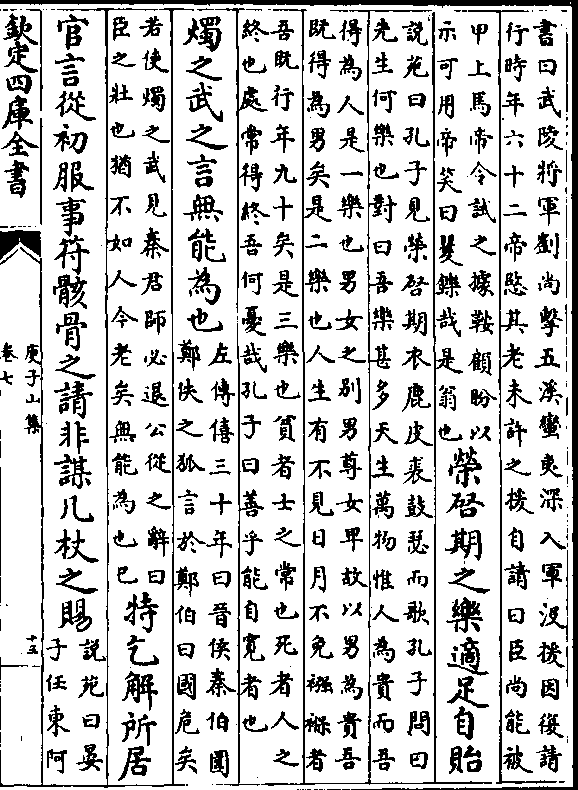 書曰武陵將軍劉尚擊五溪蠻夷深入軍沒援因復請
行時年六十二帝愍其老未許之援自請曰臣尚能被
甲上馬帝令試之據鞍顧盼以
示可用帝笑曰矍鑠哉是翁也
榮啓期之樂適足自貽
說苑曰孔子見榮啓期衣鹿皮裘鼓瑟而歌孔子問曰
先生何樂也對曰吾樂甚多天生萬物惟人為貴而吾
得為人是一樂也男女之别男尊女卑故以男為貴吾
既得為男矣是二樂也人生有不見日月不免襁褓者
吾既行年九十矣是三樂也貧者士之常也死者人之
終也處常得終吾何憂哉孔子曰善乎能自寛者也
燭之武之言無能為也
左傳僖三十年曰晉侯秦伯圍
鄭佚之狐言於鄭伯曰國危矣
若使燭之武見秦君師必退公從之辭曰
臣之壯也猶不如人今老矣無能為也已
特乞解所居
官言從初服事符骸骨之請非謀几杖之賜
說苑曰晏
子任東阿
欽定四庫全書
庾子山集
卷七
十五